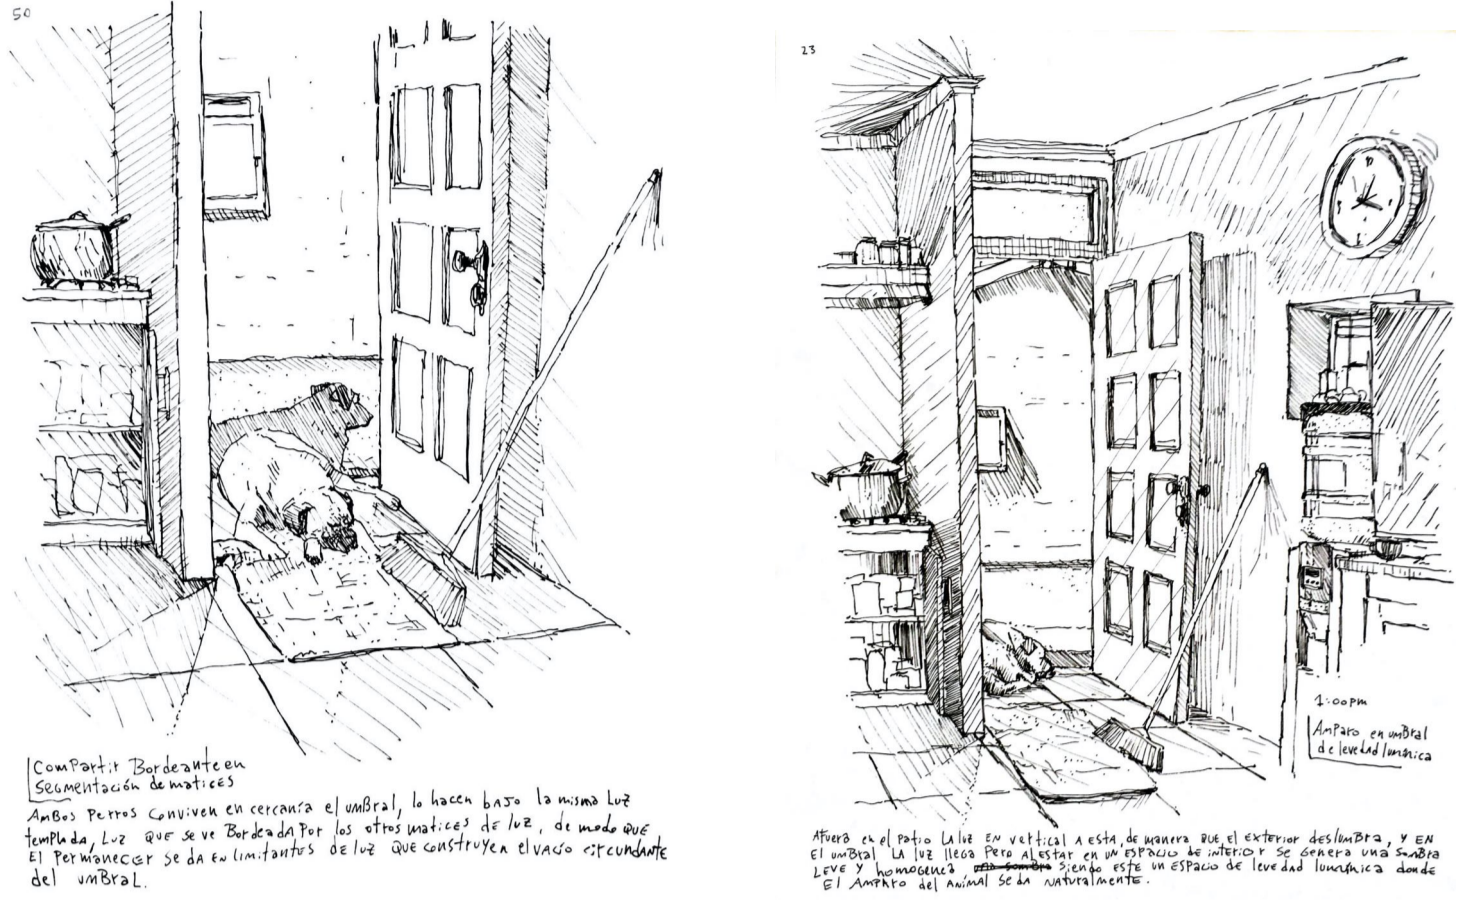 50
Compartir Bordeante en
segmentación de matices
Ambos perros conviven en cercanía el umbral, lo hacen bajo la misma luz
templada, luz que se ve bordeada por los otros matices de luz, de modo que
el permanecer se da en limitantes de luz que construyen el vacio circundante
del umbral.
23
1:00pm
Amparo en umbral
de levedad lumínica
Afuera en el patio la luz en vertical a esta, de manera que el exterior deslumbra, y en
el umbral la luz llega pero al estar en un espacio de interior se genera una sombra
leve y homogenea, una sombra siendo este un espacio de levedad lumínica donde
el amparo del animal se da naturalmente.